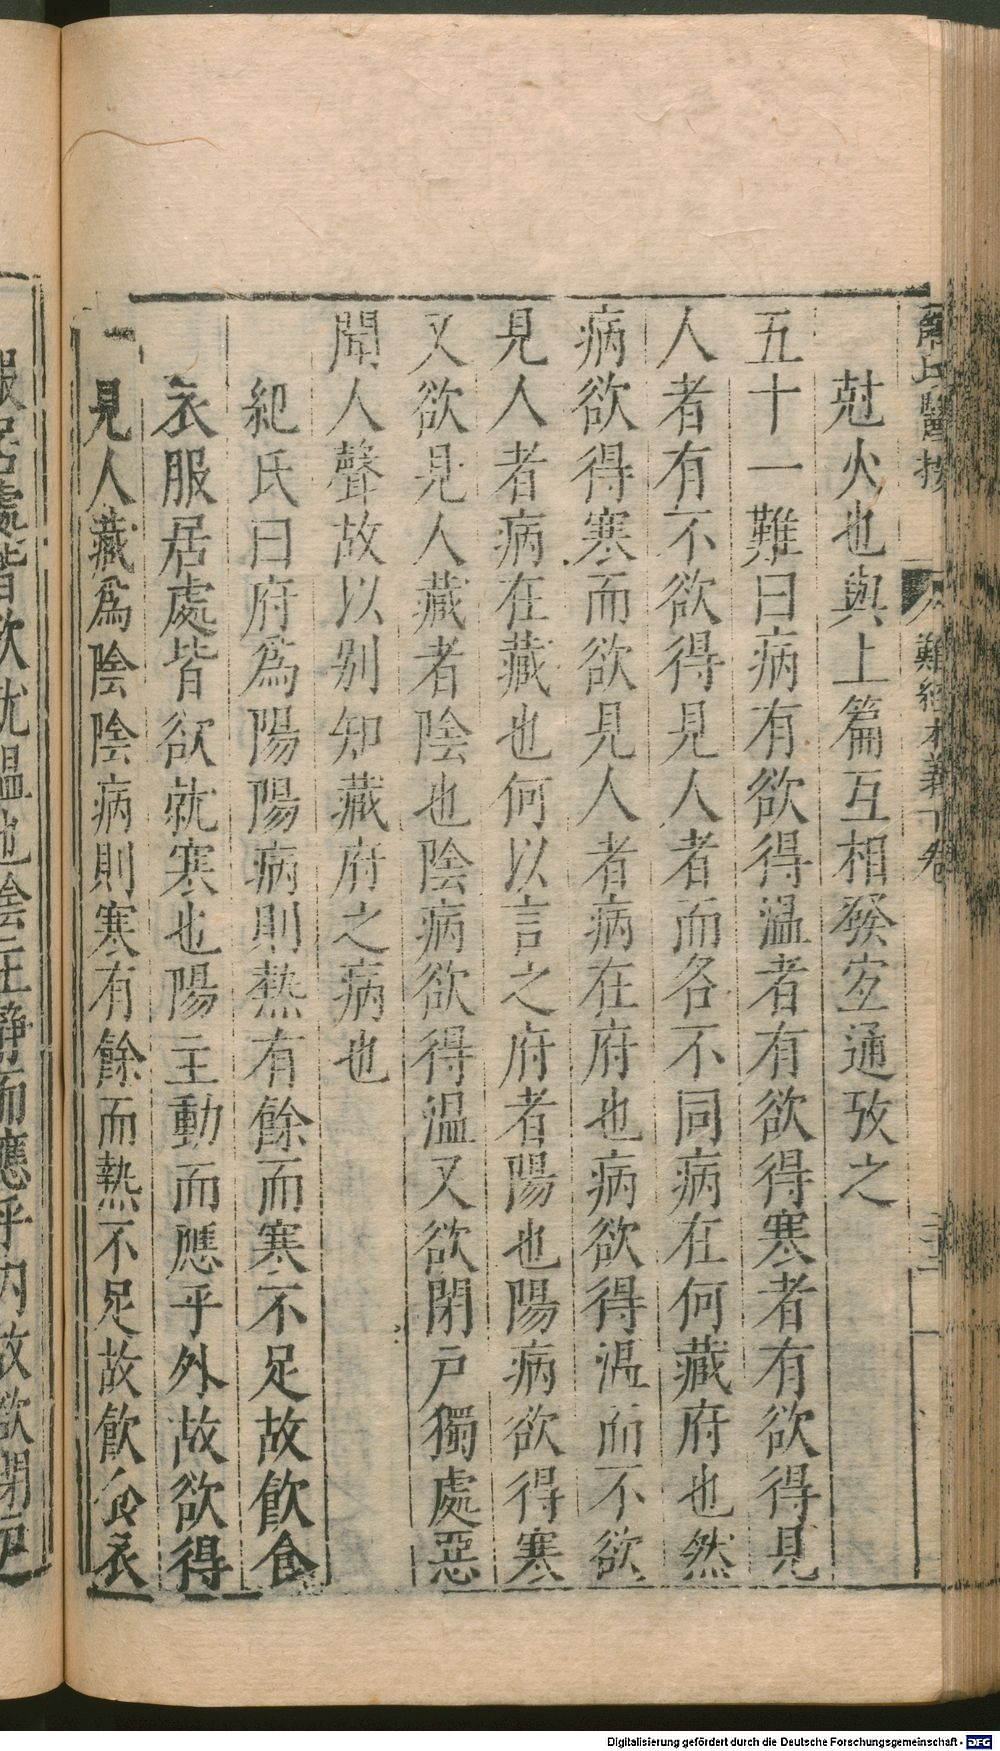 難經本義下卷
尅火也與上篇互相發宜通攷之
五十一難曰病有欲得溫者有欲得寒者有欲得見
人者有不欲得見人者而各不同病在何藏府也然
病欲得寒而欲見人者病在府也病欲得溫而不欲
見人者病在藏也何以言之府者陽也陽病欲得寒
又欲見人藏者陰也陰病欲得溫又欲閉戶獨處惡
聞人聲故以别知藏府之病也
紀氏曰府爲陽陽病則熱有餘而寒不足故飮食
衣服居處皆欲就寒也陽主動而應乎外故欲得
見人藏爲陰陰病則寒有餘而熱不足故飮食衣
服居處皆欲就溫也陰主靜而應乎内故欲閉戶
Digitalisierung gefördert durch die Deutsche Forschungsgemeinschaft - DFG